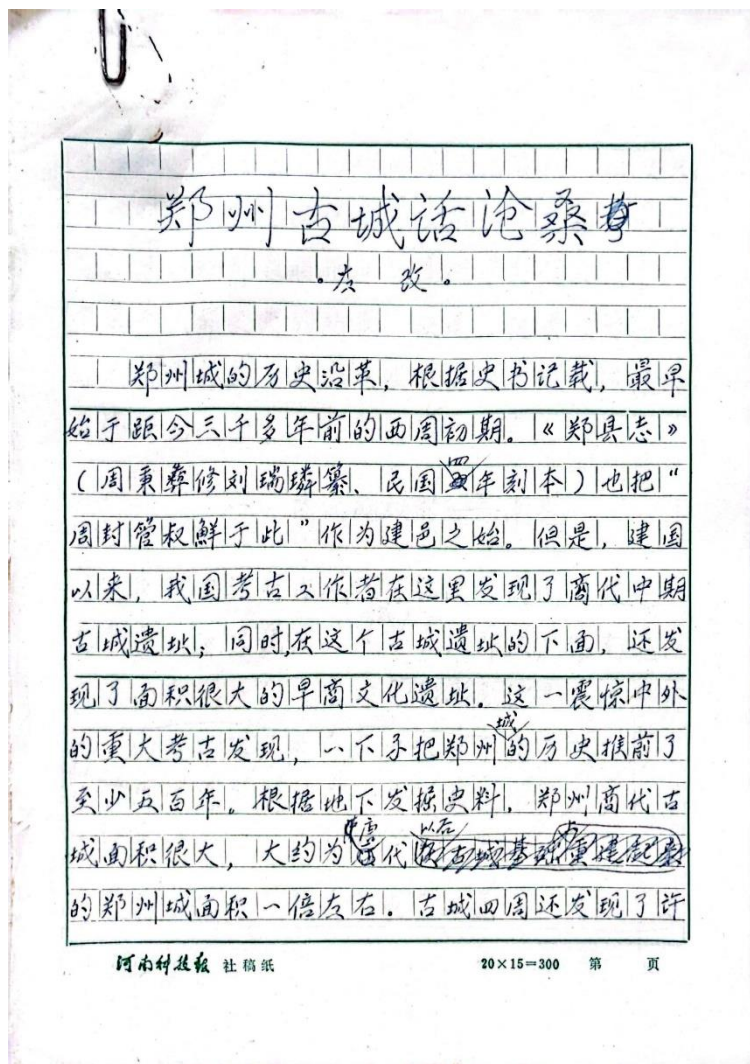 郑州古城话沧桑
·左 改·
郑州城的历史沿革，根据史书记载，最早
始于距今三千多年前的西周初期。《郑县志》
（周秉彝修刘瑞璘纂、民国四年刻本）也把“
周封管叔鲜于此”作为建邑之始。但是，建国
以来，我国考古工作者在这里发现了商代中期
古城遗址；同时，在这个古城遗址的下面，还发
现了面积很大的早商文化遗址。这一震惊中外
的重大考古发现，一下子把郑州城的历史推前了
至少五百年。根据地下发掘史料，郑州商代古
城面积很大，大约为唐代以后
的郑州城面积一倍左右。古城四周还发现了许
河南科技报 社稿纸 20×15=300 第 页